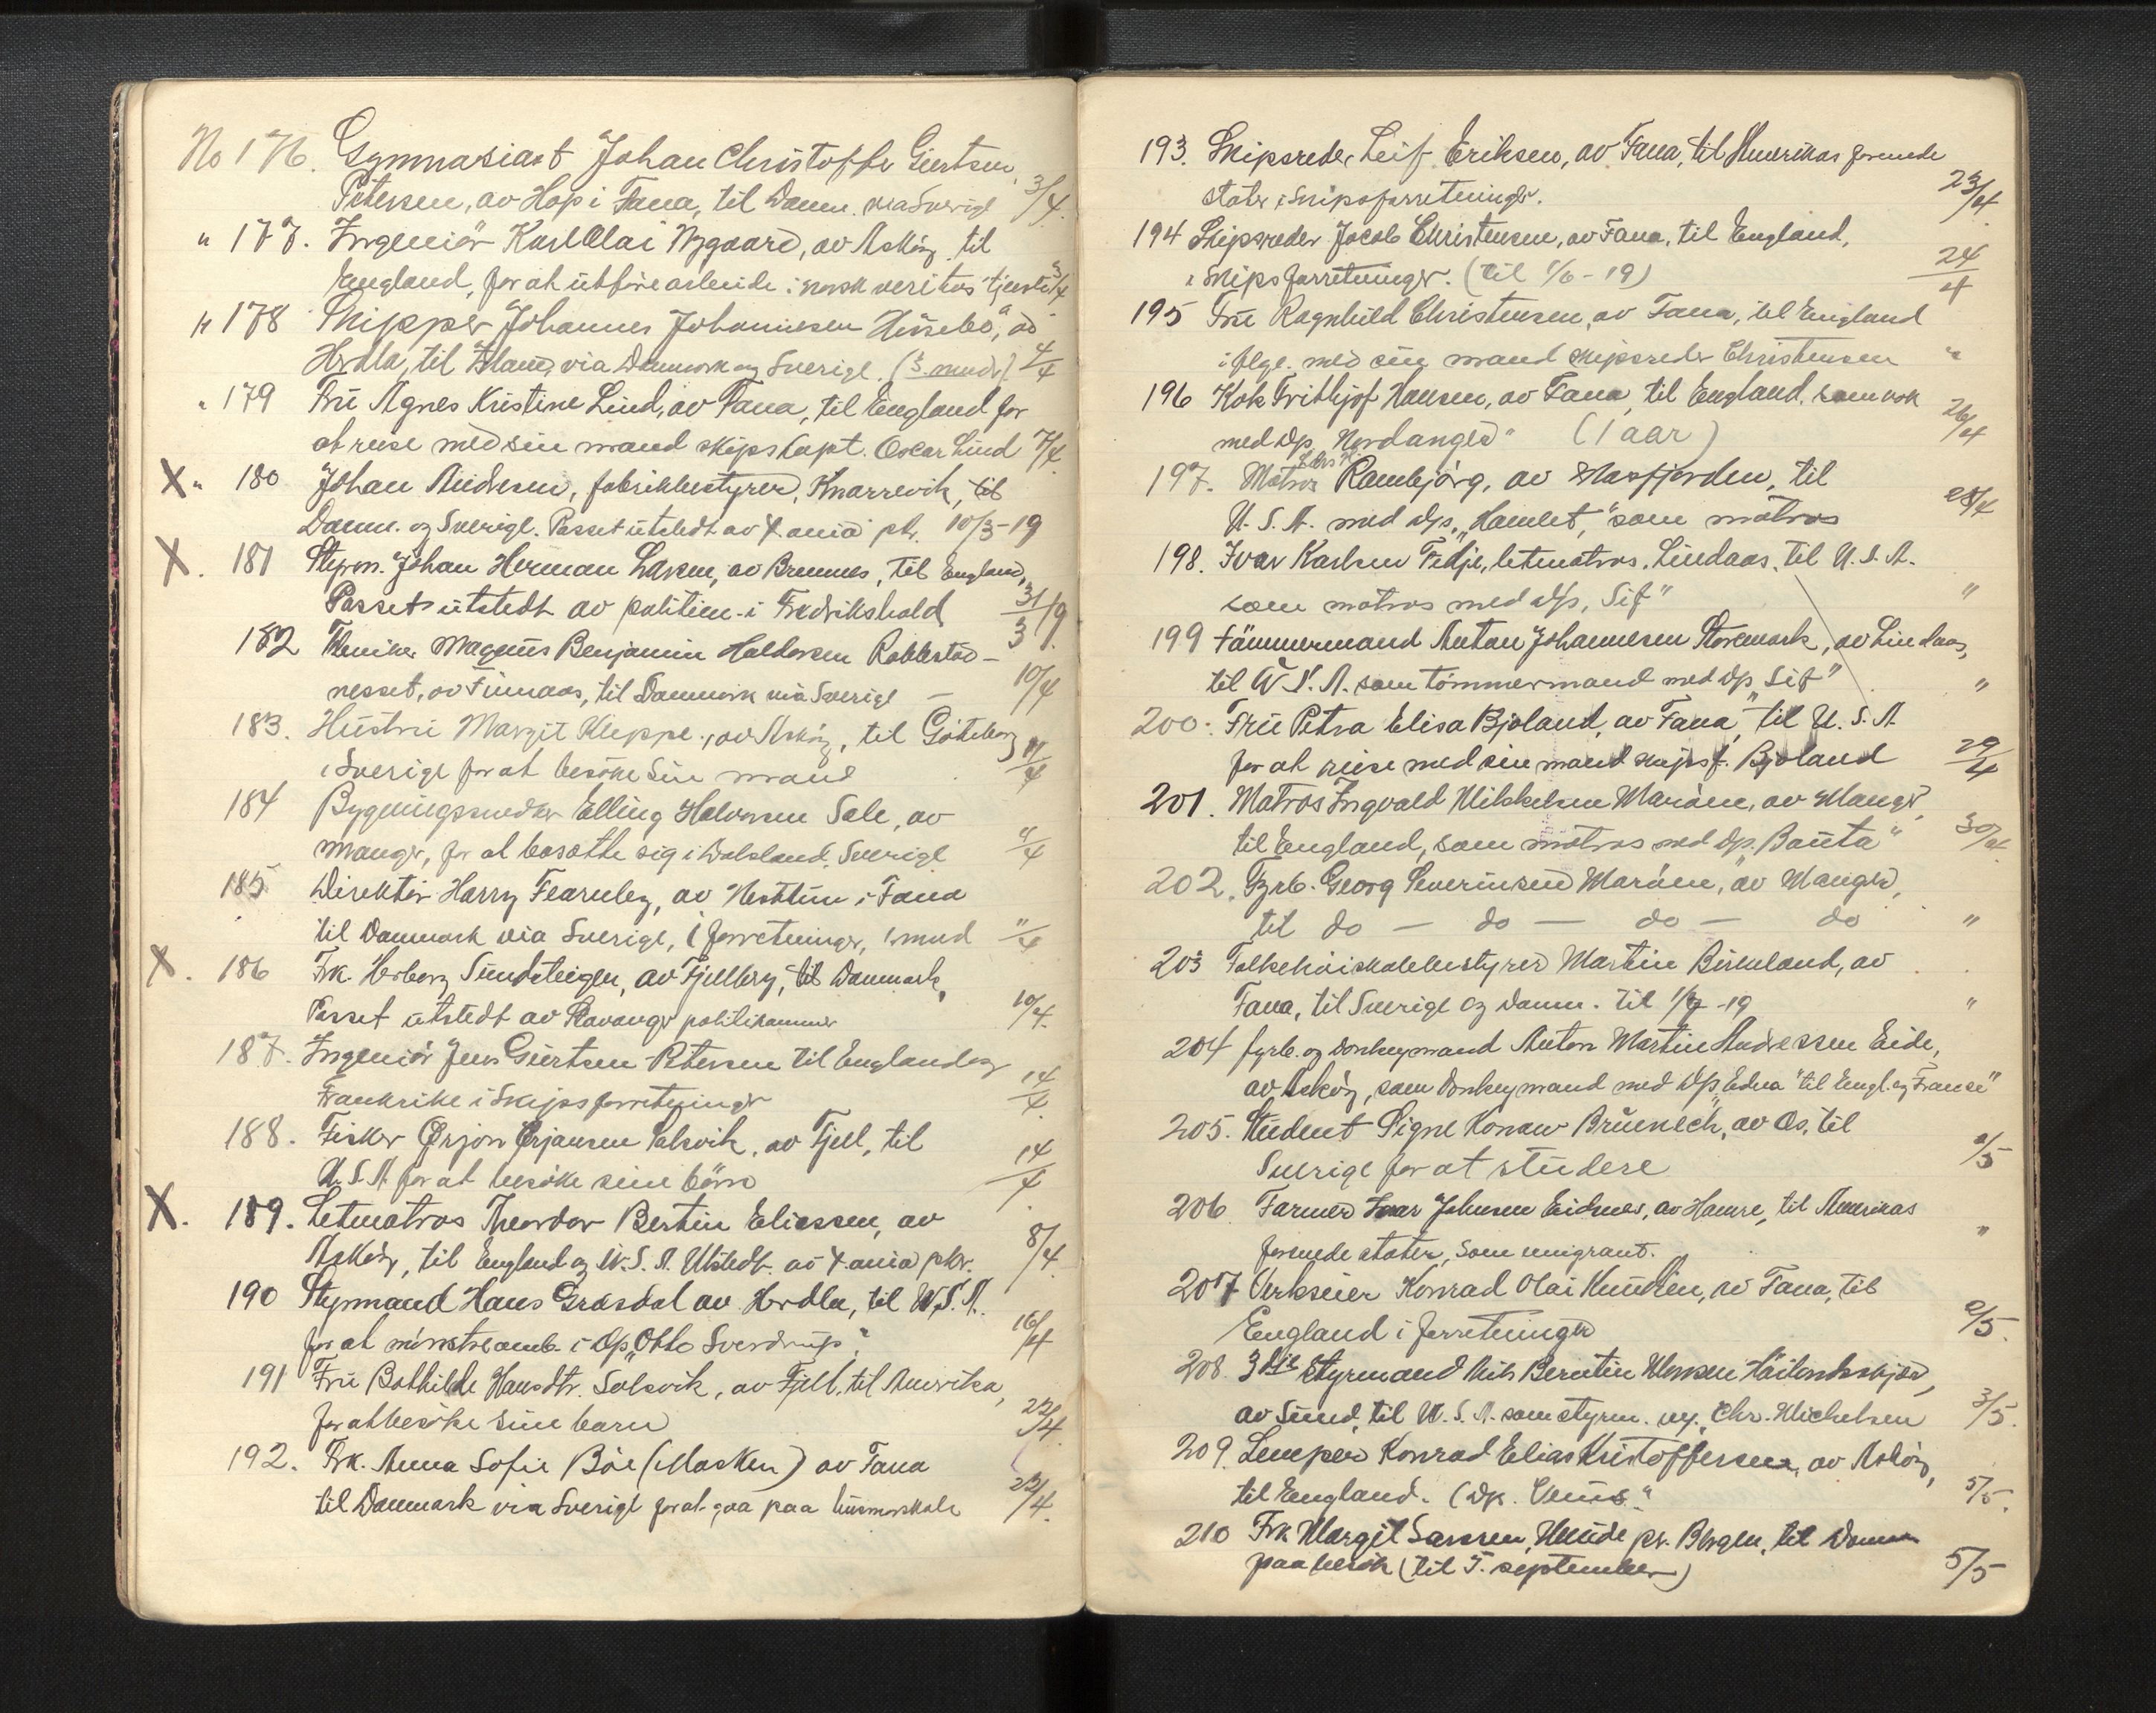 No 176. Gymnasiast Johan Christoffer Giertsen
Petersen, av Hop i Fana, til Danm. via Sverige 3/4.
" 177. Ingeniör Karl Olai Nygaard, av Asköy til
England, for at utföre arbeide i norsk veritas tjeneste 3/4
" 178 Skipper Johannes Johannesen Husebö, av
Herdla, til Island, via Danmark og Sverige. (3. mndr) 4/4
" 179 Fru Agnes Kristine Lind, av Fana, til England for
at reise med sin mand skipskapt. Oscar Lind 7/4
X " 180 Johan Andresen, fabrikbestyrer, Knarrevik, til
Danm. og Sverige. Passet utstedt av X.ania pk. 10/3-19
X. 181 Styrm. Johan Herman Larsen, av Bremnes, til England,
Passet utstedt av politiem. i Fredrikshald 31/3 19.
182 Tekniker Magnus Benjamin Haldorsen Rabbestad-
nesset, av Finnaas, til Danmark via Sverige — 10/4
183. Hustru Margit Kleppe, av Asköy, til Göteborg
i Sverige for at besöke sin mand 11/4
184 Bygningssnedker Elling Halvorsen Sele, av
Manger, for at bosætte sig i Dalsland, Sverige 11/4
185 Direktör Harry Fearnley, av Nesttun i Fana
til Danmark via Sverige, i forretninger, 1 mnd 11/4
X. 186 Frk. Herborg Sundsteigen, av Fjelberg, til Danmark,
Passet utstedt av Stavanger politikammer 10/4.
187. Ingeniör Jens Giertsen Petersen til England og
Frankrike i Skipsforretninger 14/4.
188. Fisker Ørjan Ørjansen Solsvik, av Fjell, til
U.S.A. for at besöke sine börn 14/4.
X. 189. Letmatros Theordor Bertin Eliassen, av
Asköy, til England og U.S.A. Utstedt av X.ania pkr. 8/4.
190 Styrmand Hans Græsdal av Herdla, til U.S.A.
for at mönstre omb. i Dp "Otto Sverdrup". 16/4
191 Fru Bothilde Hansdtr. Solsvik, av Fjell, til Amerika,
for at besöke sine barn 22/4.
192. Frk. Anna Sofie Böe (Masken) av Fana
til Danmark via Sverige for at gaa paa husmorskole 22/4.
193. Skipsreder Leif Eriksen, av Fana, til Amerikas forenede
stater i skipsforretninger. 23/4
194 Skipsreder Jacob Christensen, av Fana, til England,
i skipsforretninger. (til 1/6-19) 24/4
195 Fru Ragnhild Christensen, av Fana, til England
i følge med sin mand skipsreder Christensen "
196 Kok Frithjof Hansen, av Fana, til England, som kok
med Dp "Nordanger" (1 aar) 26/4
197. Matros Lars N. Rambjörg, av Masfjorden, til
U.S.A. med dps. "Hamlet," som matros 28/4
198. Ivar Karlsen Fedje, letmatros, Lindaas, til U.S.A.
som matros med d/s, Sif" "
199 Tömmermand Anton Johannesen Storemark, av Lindaas,
til U.S.A. som tömmermand med Dp "Sif" "
200. Fru Petra Elisa Bjoland, av Fana, til U.S.A
for at reise med sin mand skipsf. Bjoland 29/4
201. Matros Ingvald Mikkelsen Maröen, av Manger,
til England, som matros med dp. "Bauta" 30/4.
202. Fyrb. Georg Severinsen Maröen, av Manger,
til do — do — do — do "
203 Folkehöiskolebestyrer Martin Birkeland, av
Fana, til Sverige og Danm. til 1/7-19 "
204 fyrb. og Donkeymand Anton Martin Andressen Eide,
av Asköy, som donkeymand med Dp "Edna" til Engl. og Franse"
205. Student Signe Konow Brünech, av Os, til
Sverige for at studere 2/5
206 Farmer Ivar Johnsen Eidnes, av Hamre, til Amerikas
forenede stater, som emigrant. "
207 Verkseier Konrad Olai Knudsen, av Fana, til
England i forretninger 2/5.
208. 3dje Styrmand Nils Berntin Hansen Höilandskjær,
av Sund, til U.S.A. som styrm. m/. Chr. Michelsen 3/5.
209. Lemper Konrad Elias Kristoffersen, av Asköy,
til England. (Dp. Venus." 5/5.
210 Frk Margit Larssen, Minde pr. Bergen, til Danm
paa besök (til 5. september) 5/5